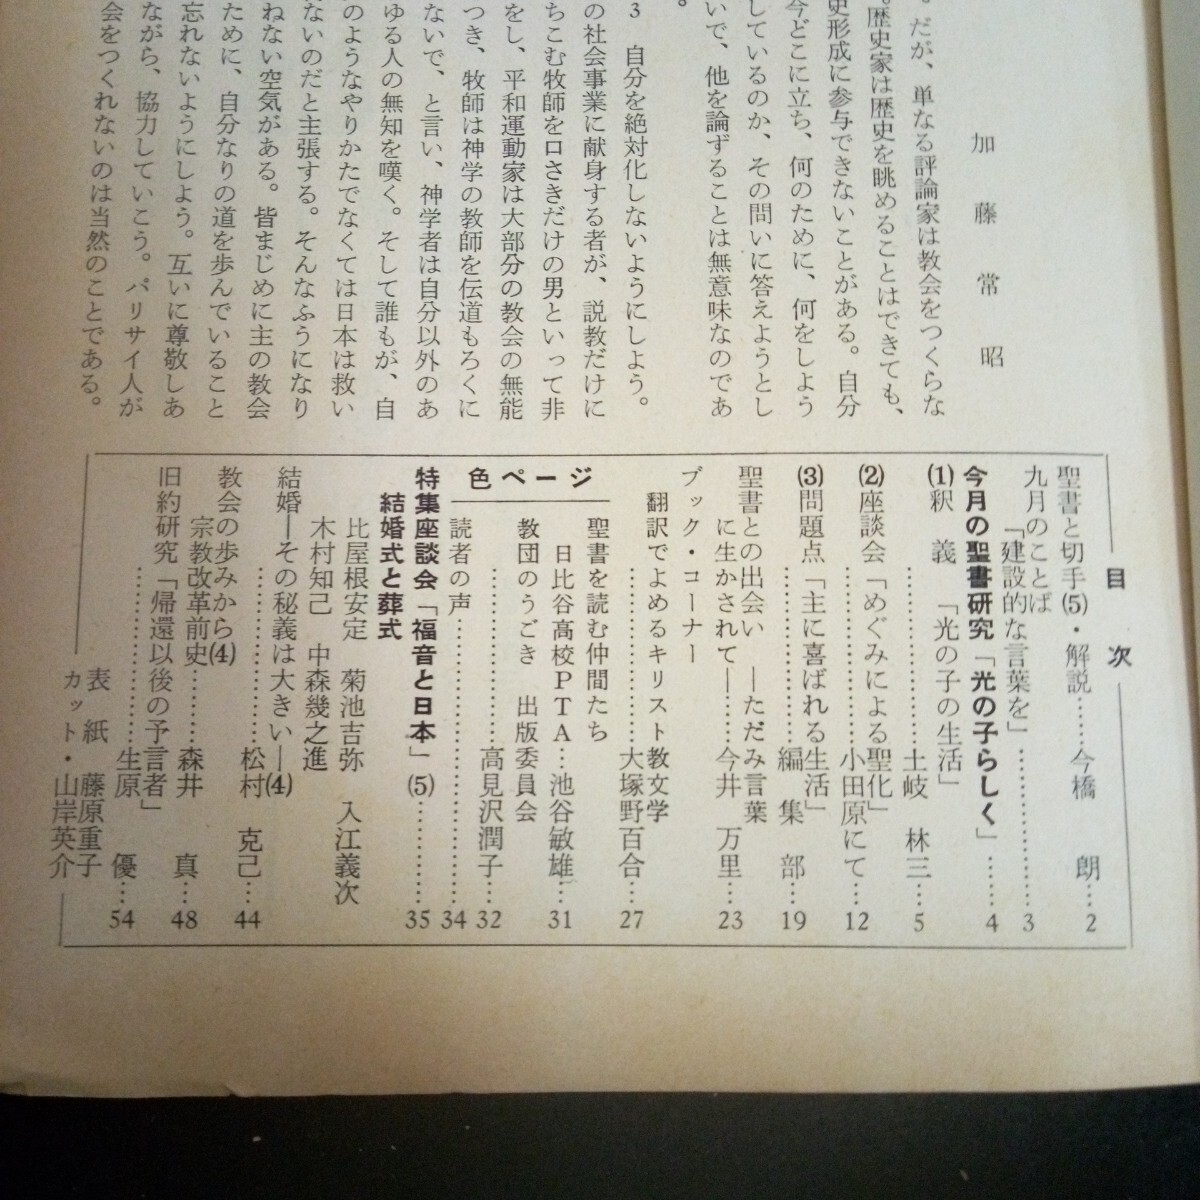 加藤常昭
。だが、単なる評論家は教会をつくらな
。歴史家は歴史を眺めることはできても、
史形成に参与できないことがある。自分
今どこに立ち、何のために、何をしよう
しているのか、その問いに答えようとし
いで、他を論ずることは無意味なのであ
。
3 自分を絶対化しないようにしよう。
の社会事業に献身する者が、説教だけに
ちこむ牧師を口さきだけの男といって非
をし、平和運動家は大部分の教会の無能
つき、牧師は神学の教師を伝道もろくに
ないで、と言い、神学者は自分以外のあ
ゆる人の無知を嘆く。そして誰もが、自
のようなやりかたでなくては日本は救い
ないのだと主張する。そんなふうになり
ねない空気がある。皆まじめに主の教会
ために、自分なりの道を歩んでいること
忘れないようにしよう。互いに尊敬しあ
ながら、協力していこう。パリサイ人が
会をつくれないのは当然のことである。
目次
聖書と切手(5)・解説……今橋 朗…2
九月のことば
「建設的な言葉を」………………3
今月の聖書研究「光の子らしく」……4
(1)釈 義 「光の子の生活」
………………土岐 林三…5
(2)座談会「めぐみによる聖化」
………………小田原にて…12
(3)問題点「主に喜ばれる生活」
………………編 集 部…19
聖書との出会い ―ただみ言葉
に生かされて―……今井 万里…23
ブック・コーナー
翻訳でよめるキリスト教文学
………………大塚野百合…27
色ページ
聖書を読む仲間たち
日比谷高校PTA…池谷敏雄…31
教団のうごき 出版委員会
………………高見沢潤子…32
読者の声………………………34
特集座談会「福音と日本」(5)………35
結婚式と葬式
比屋根安定 菊池吉弥 入江義次
木村知己 中森幾之進
結婚―その秘義は大きい―(4)
………………松村 克己…44
教会の歩みから(4)
宗教改革前史………森井 真…48
旧約研究「帰還以後の予言者」
………………生原 優…54
表紙 藤原重子
カット・山岸英介